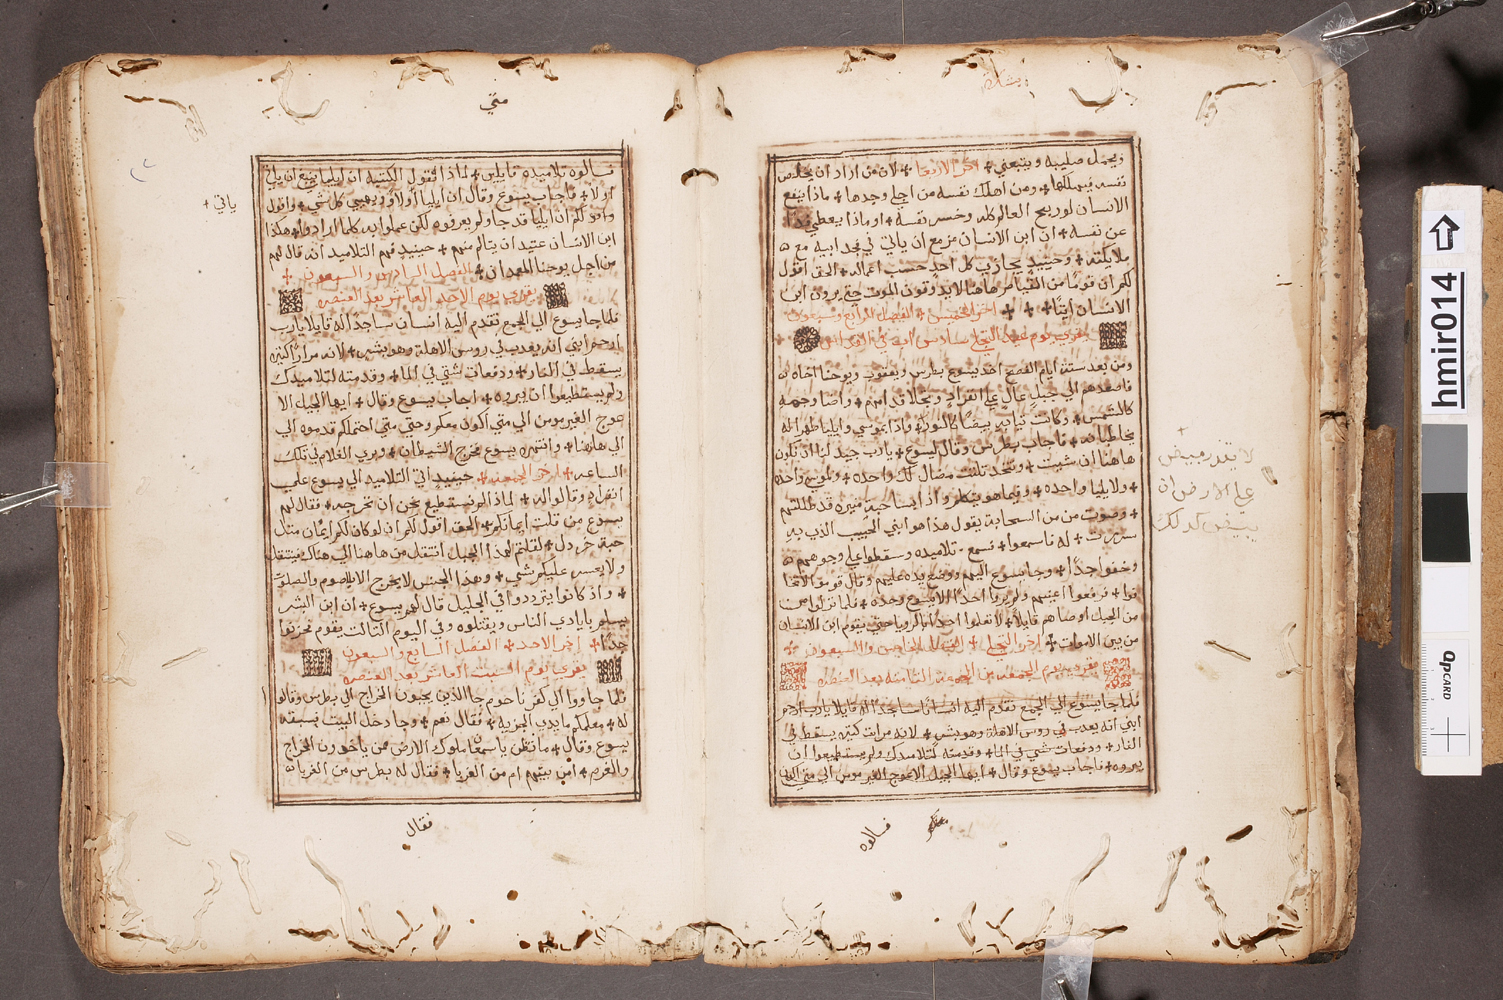 بشارة
ويحمل صليبه ويتبعني + اخر الاربعا + لان من اراد ان يخلص
نفسه فيهلكها + ومن اهلك نفسه من اجلي وجدها + ماذا ينفع
الانسان لو ربح العالم كله وخسر نفسه + او ماذا يعطي فدا
عن نفسه + ان ابن الانسان مزمع ان ياتي في مجد ابيه مع
ملايكته + وحينيذ يجازي كل احد حسب اعماله + الحق اقول
لكم ان قوما من القيام هاهنا لا يذوقون الموت حتى يرون ابن
الانسان اتيا + + + اخر الخميس + الفصل الرابع وسبعون
يقرى يوم عيد التجلي سادس اب في القداس
ومن بعد ستة ايام الفصح اخذ يسوع بطرس ويعقوب ويوحنا اخاه
فاصعدهم الي جبل عال علي انفراد وتجلا قدامهم + واضا وجهه
كالشمس + وكانت ثيابه بيضا كالنور + واذا موسي وايليا ظهرا له
يخاطبانه + فاجاب بطرس وقال ليسوع + يارب جيد لنا ان نكون
هاهنا ان شيت + ونتخذ تلت مضال لك واحده + ولموسي واحده
+ ولايليا واحده + وفيما هو يتكلم واذا بسحابة منيره قد ظللتهم
+ وصوت من السحابة يقول هذا هو ابني الحبيب الذي به
سررت + له فاسمعوا + فسمع تلاميذه وسقطوا علي وجوههم
وخافوا جدا + وجا يسوع اليهم ووضع يده عليهم وقال قوموا لا تخا
فوا + فرفعوا اعينهم ولم يروا احدا الا يسوع وحده + فلما نزلوا من
الجبل اوصاهم قايلا + لا تعلموا احدا بالرويا حتي يقوم ابن الانسان
من بين الاموات + اخر التجلي + الفصل الخامس والسبعون +
يقرى يوم الجمعه من الجمعه الثامنه بعد العنصره
فلما جا يسوع الي الجمع تقدم اليه انسانا ساجدا له قايلا يارب ارحم
ابني انه يعدب في روس الاهلة وهو بشر + لانه مرات كثيره يسقط في
النار + ودفعات شتي في الما + وقدمته لتلاميدك ولم يستطيعوا ان
يبروه + فاجاب يسوع وقال + ايها الجيل الاعوج الغير مومن الي متي اكون
معكم
فسالوه
لا يقدر مبيض
علي الارض ان
يبيض كدلك
متي
فسالوه تلاميذه قايلين + لماذا تقول الكتبه ان ايليا ينبغ ان ياتي
اولا + فاجاب يسوع وقال ان ايليا اولا ويهيي كل شي + واقول
واقول لكم ان ايليا قد جا ولم يعرفوه لكن عملوا به كلما ارادوا + هكذا
ابن الانسان عتيد ان يتالم منهم + حينيذ فهم التلاميذ انه قال لهم
من اجل يوحنا المعمدان + الفصل السادس والسبعون +
يقرى يوم الاحد العاشر بعد العنصره
فلما جا يسوع الي الجمع تقدم اليه انسان ساجدا له قايلا يارب
ارحم ابني انه يعدب في روس الاهلة وهو بشر + لانه مرارا كثيره
يسقط في النار + ودفعات شتي في الما + وقدمته لتلاميدك
ولم يستطيعوا ان يبروه + اجاب يسوع وقال + ايها الجيل الا
عوج الغير مومن الي متي اكون معكم وحتي متي احتملكم قدموه الي
الي هاهنا + وانتهره يسوع فخرج الشيطان + وبري الغلام في تلك
الساعه + اخر الجمعه + حينيذ اتي التلاميد الي يسوع علي
انفراد وقالوا له + لماذا لم نستطيع نحن ان نخرجه + فقال لهم
يسوع من قلت ايمانكم + الحق اقول لكم ان لو كان لكم ايمان متل
حبة خردل + لقلتم لهذا الجبل انتقل من هاهنا الي هناك فينتقل
ولا يعسر عليكم شي + وهذا الجنس لا يخرج الا بالصوم والصلوة
+ واذ كانوا يترددوا في الجليل قال لهم يسوع + ان ابن البشر
يسلم بايادي الناس ويقتلوه وفي اليوم التالت يقوم فحزنوا
جدا + اخر الاحد + الفصل السابع والسبعون
يقرى يوم السبت العاشر بعد العنصره
فلما جاووا الي كفرناحوم جا الذين يجبون الخراج الي بطرس وقالوا
له + معلمكم ما يودي الجزيه + فقال نعم + وجا دخل البيت فسبقه
يسوع وقال + ما تظن يا سمعان ملوك الارض ممن ياخذون الخراج
والغرم + امن بنيهم ام من الغربا + فقال له بطرس من الغربا
فقال
ياتي +